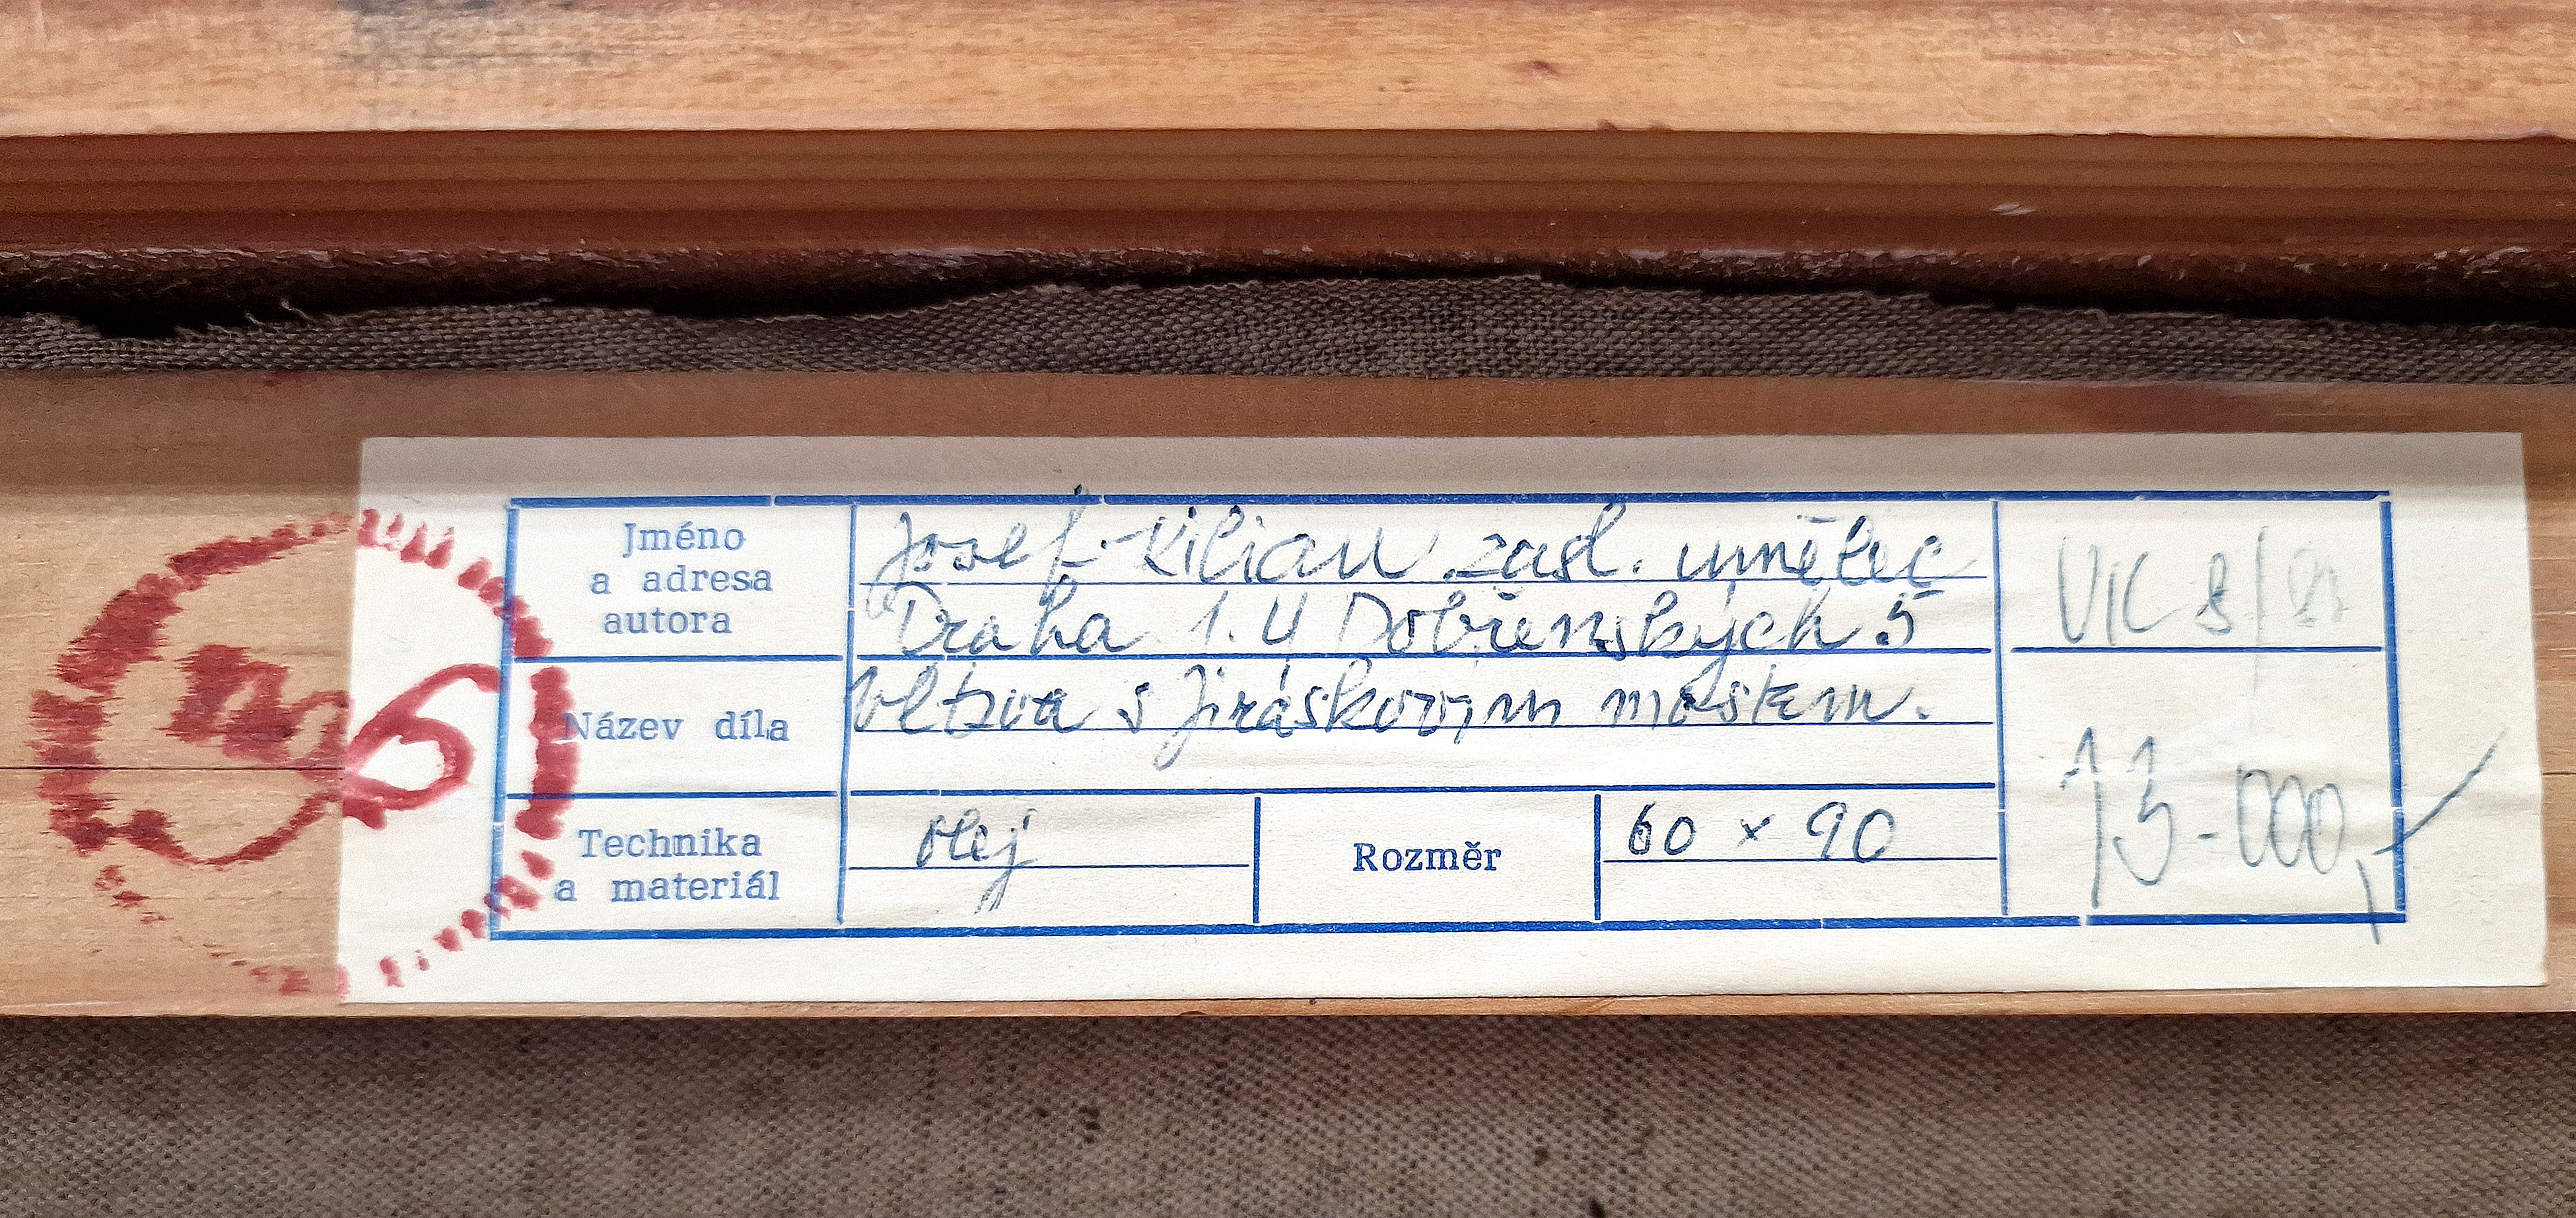 Jméno
a adresa
autora
Josef Kilian zasl. umělec
Praha 1. Dobřenských 5
Název díla
Vltava s Jiráskovým mostem.
Technika
a materiál
olej
Rozměr
60 x 90
VIC 8/
13-000,